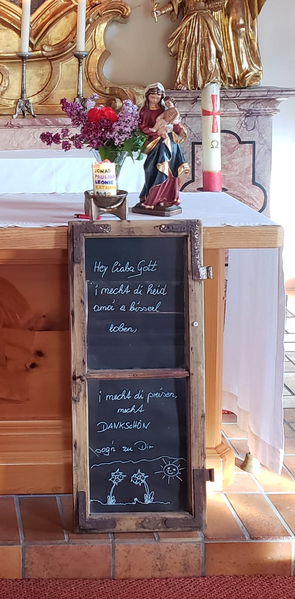 JONAS
PAULINA
LEONIE
Ω
Hey liaba Gott
i mecht di heid
amà a bisserl
loben,
i mecht di preisen,
mecht
DANKSCHÖN
sog'n zu Dir